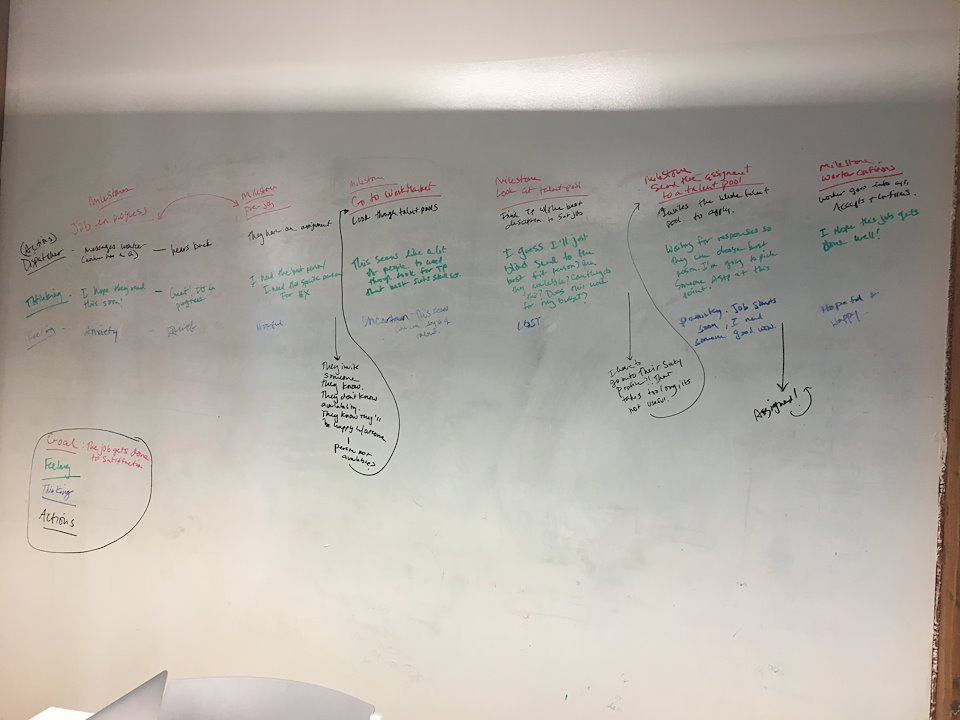 Milestone
Job in progress
(Actions)
Dispatcher - messages worker
- hears back
Thinking - I hope they read
this soon!
- Great! it's in
progress
Feeling - Anxiety
- Relief
Milestone
pre-job
They have an assignment
I need the best person
I need
For
Hopeful
Milestone
Go to WorkMarket
Look through talent pools
This seems like a lot
of people to weed
through. Look for TP
that best suits
Uncertain
They invite
someone
they know.
They don't know
availability.
They know they'll
be happy w/outcome
person not
available?
Milestone
Look at talent pool
Find TP w/ the best
description to suit job
I guess I'll just
blind send to the
best fit person? Are
they available? Can they do
this? Does this work
for my budget?
LOST
Milestone
Send the assignment
to a talent pool
Invites the whole talent
pool to apply.
Waiting for responses so
they can choose best
person. I'm going to pick
someone ASAP at this
point.
Panicky. Job starts
soon, I need
someone good now.
I have to
go into their
profile!! That
takes too long, it's
not useful.
Assigned!
Milestone
Worker confirms
worker goes into app,
Accepts + confirms.
I hope this job gets
done well!
Hopeful +
Happy
Goal: The job gets done
to satisfaction
Feeling
Thinking
Actions